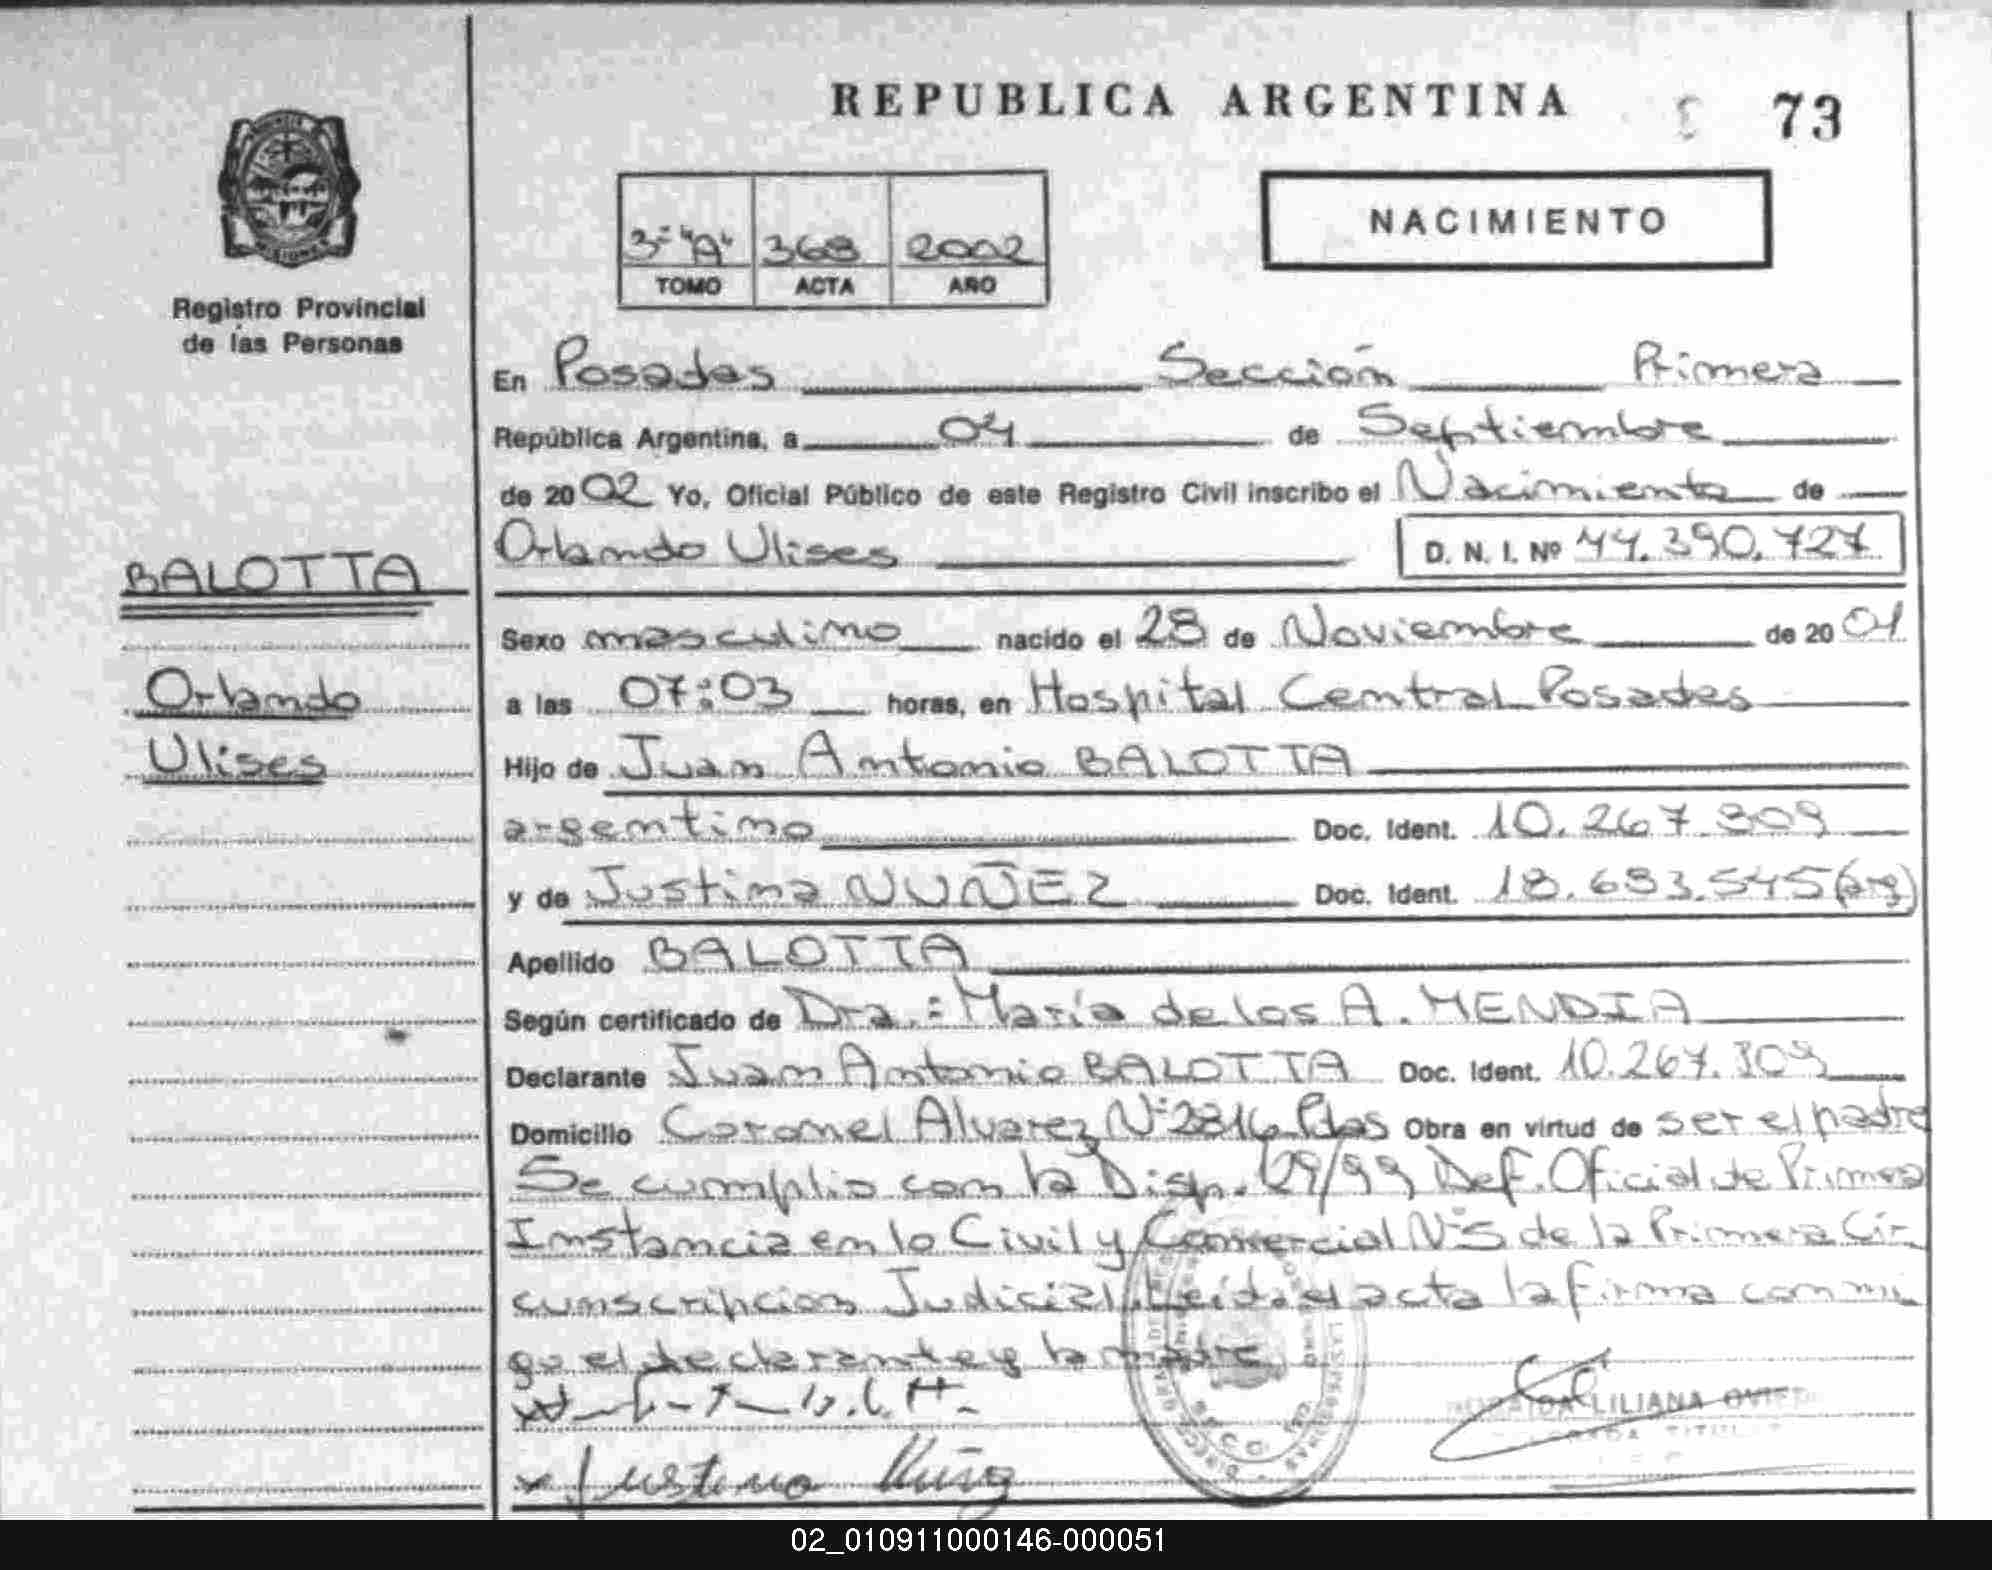 REPUBLICA ARGENTINA 73
NACIMIENTO
3º "A" 368 2002
TOMO ACTA AÑO
Registro Provincial
de las Personas
En Posadas Sección Primera
República Argentina, a 04 de Septiembre
de 2002 Yo, Oficial Público de este Registro Civil inscribo el Nacimiento de
Orlando Ulises D. N. I. Nº 44.390.727
BALOTTA
Orlando
Ulises
Sexo masculino nacido el 28 de Noviembre de 2001
a las 07:03 horas, en Hospital Central Posadas
Hijo de Juan Antonio BALOTTA
argentino Doc. Ident. 10.267.309
y de Justina NUÑEZ Doc. Ident. 18.683.545 (arg)
Apellido BALOTTA
Según certificado de Dra.: María de los A. MENDIA
Declarante Juan Antonio BALOTTA Doc. Ident. 10.267.309
Domicilio Coronel Alvarez Nº 2816 Pdas Obra en virtud de ser el padre
Se cumplio con la Disp. 29/99 Def. Oficial de Primera
Instancia en lo Civil y Comercial Nº 5 de la Primera Cir-
cunscripcion Judicial. Leida el acta la firma conmi
go el declarante y la madre
x Justina Nuñez
LILIANA
02_010911000146-000051